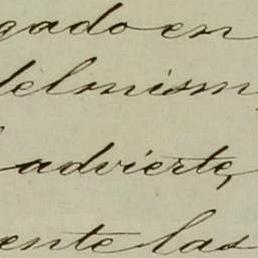 gado en
delmism
advierte,
ente las